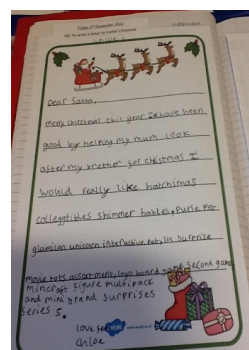 Friday 3rd December 2021
LO: To write a letter to Father Christmas
Dear Santa,
merry christmas this year I have been
good by helping my mum look
after my brother for christmas I
would really like hatchimas
colleggtibles shimmer babies, Purse Pet
glamicon unicorn interactive pet, lol surprise
movie sets assortment, logo board game second game
Mincraft figure multipack
and mini brand surprises
series 5.
love from
Chloe